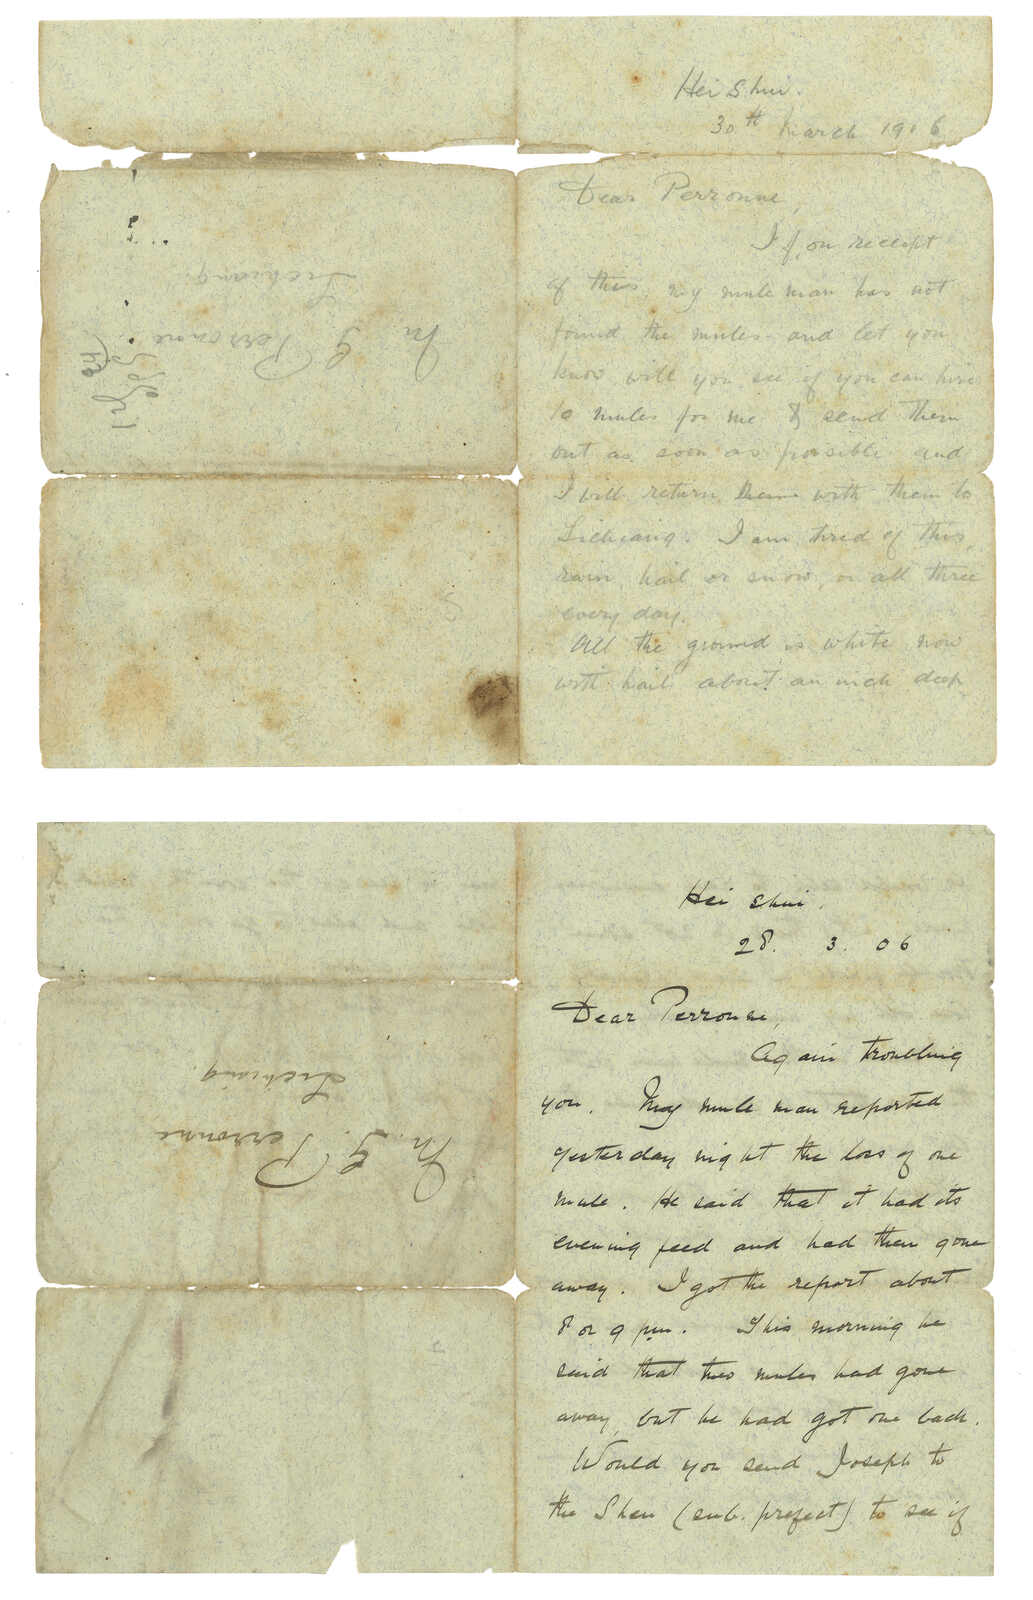 Hei Shui.
30th March 1906
Dear Perronne,
If, on receipt
of this, my mule man has not
found the mules and let you
know will you see if you can hire
10 mules for me & send them
out as soon as possible and
I will return with them to
Lichiang. I am tired of this,
rain, hail or snow, or all three
every day.
All the ground is white now
with hail about an inch deep
Mr. G. Perronne
Lichiang.
Hei Shui.
28. 3. 06
Dear Perronne,
Again troubling
you. My mule man reported
yesterday night the loss of one
mule. He said that it had its
evening feed and had then gone
away. I got the report about
8 or 9 pm. This morning he
said that two mules had gone
away, but he had got one back.
Would you send Joseph to
the Shen (sub. prefect) to see if
Mr. G. Perronne
Lichiang.